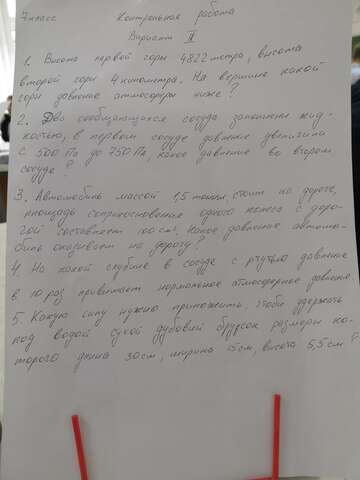 7 класс Контрольная работа
Вариант II
1. Высота первой горы 4822 метра, высота
второй горы 4 километра. На вершине какой
горы давление атмосферы ниже?
2. Два сообщающихся сосуда заполнены жид-
костью, в первом сосуде давление увеличили
с 500 Па до 750 Па, какое давление во втором
сосуде?
3. Автомобиль массой 1,5 тонны, стоит на дороге,
площадь соприкосновения одного колеса с доро-
гой составляет 100 см². Какое давление автомо-
биль оказывает на дорогу?
4. На какой глубине в сосуде с ртутью давление
в 10 раз превышает нормальное атмосферное давление.
5. Какую силу нужно приложить, чтобы удержать
под водой сухой дубовый брусок размеры ко-
торого длина 30 см, ширина см, высота 5,5 см?